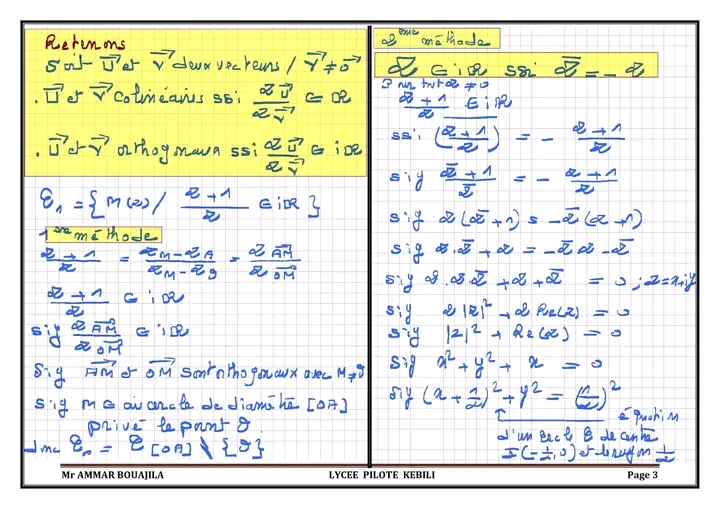 Retenons
Soit U⃗ et V⃗ deux vecteurs / V⃗ ≠ 0⃗
. U⃗ et V⃗ Colinéaires ssi Z_U⃗ / Z_V⃗ ∈ IR
. U⃗ et V⃗ orthogonaux ssi Z_U⃗ / Z_V⃗ ∈ iIR
ℰ₁ = { M(z) / (z+1)/z ∈ iIR }
1ère méthode
(z+1)/z = (z_M - z_A)/(z_M - z_O) = z_AM⃗ / z_OM⃗
(z+1)/z ∈ iIR
sig z_AM⃗ / z_OM⃗ ∈ iIR
Sig AM⃗ et OM⃗ sont orthogonaux avec M ≠ O
Sig M ∈ au cercle de diamètre [OA]
privé le point O
donc ℰ₁ = ℰ[OA] \ {O}
2ème méthode
Z ∈ iIR ssi Z̄ = - Z
Pour tout z ≠ 0
(z+1)/z ∈ iIR
ssi ((z+1)/z)‾ = - (z+1)/z
sig (z̄+1)/z̄ = - (z+1)/z
sig z(z̄+1) = -z̄(z+1)
sig z.z̄ + z = -z̄z - z̄
sig 2.z z̄ + z + z̄ = 0 ; z = x+iy
sig 2|z|² + 2Re(z) = 0
sig |z|² + Re(z) = 0
Sig x² + y² + x = 0
sig (x + 1/2)² + y² = (1/2)²
équation
d'un cercle ℰ de centre
I(-1/2, 0) et de rayon 1/2
Mr AMMAR BOUAJILA LYCEE PILOTE KEBILI Page 3